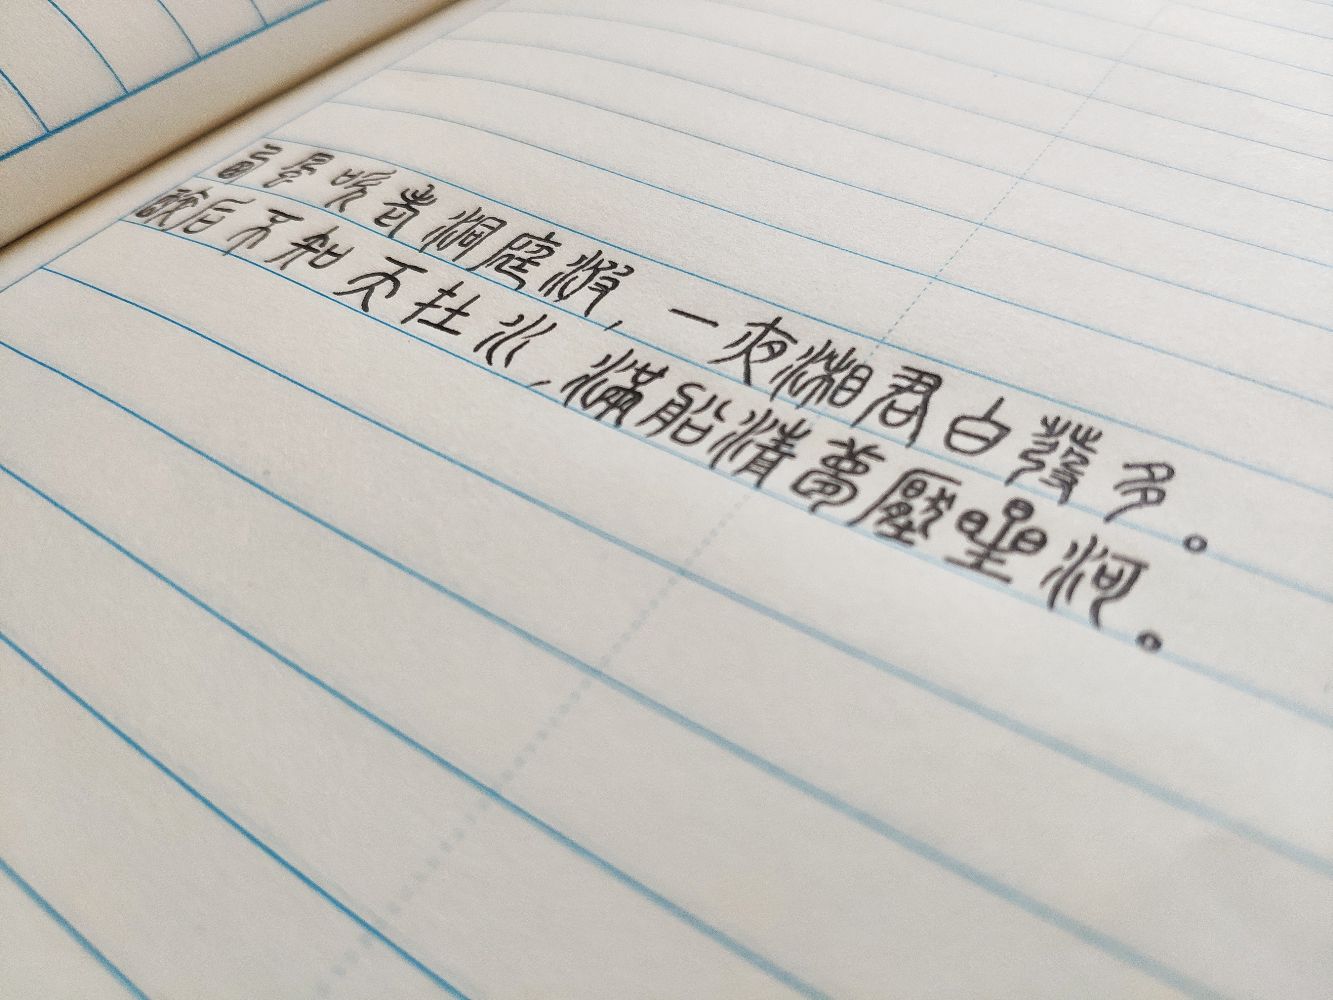 西風吹老洞庭波,一夜湘君白發多。
醉后不知天在水,滿船清夢壓星河。